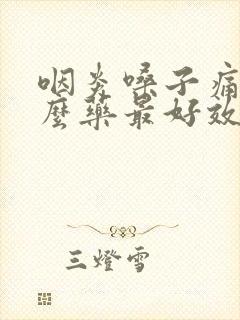 咽炎嗓子痛
麼藥最好效
三燈雪